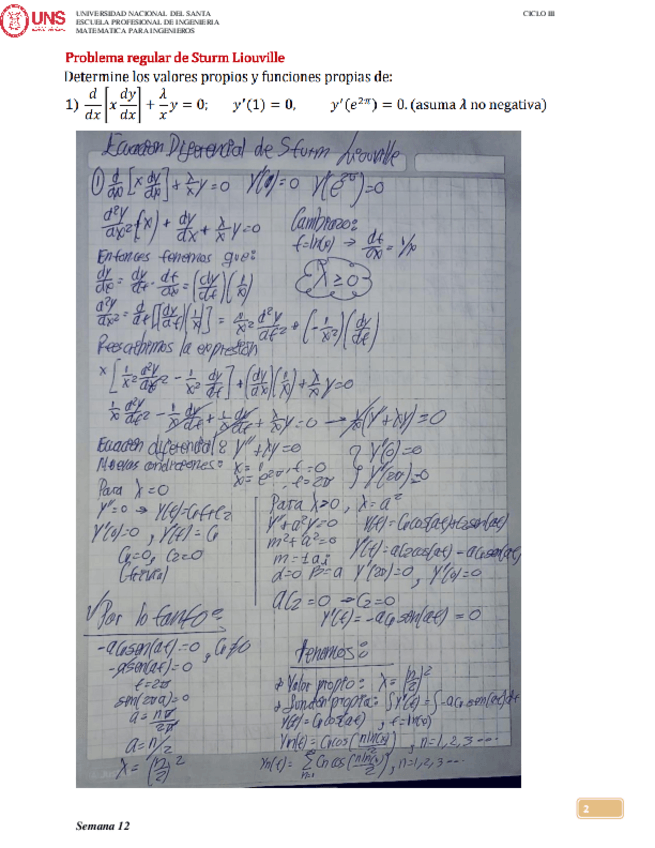 UNS
UNIVERSIDAD NACIONAL DEL SANTA
ESCUELA PROFESIONAL DE INGENIERIA
MATEMATICA PARA INGENIEROS
CICLO III
Problema regular de Sturm Liouville
Determine los valores propios y funciones propias de:
1) d/dx [x dy/dx] + λ/x y = 0; y′(1) = 0, y′(e^2π) = 0. (asuma λ no negativa)
Ecuacion Diferencial de Sturm Liouville
① d/dx [x dy/dx] + λ/x y = 0 y'(1) = 0 y'(e^2π) = 0
d²y/dx² (x) + dy/dx + λ/x y = 0
Cambiazo:
t = ln(x) → dt/dx = 1/x
Entonces tenemos que:
dy/dx = dy/dt · dt/dx = (dy/dt)(1/x)
λ ≥ 0
d²y/dx² = d/dt [(dy/dt)(1/x)] = 1/x² d²y/dt² + (-1/x²)(dy/dt)
Reescribimos la expresión
x [1/x² d²y/dt² - 1/x² dy/dt] + (dy/dx)(1/x) + λ/x y = 0
1/x d²y/dt² - 1/x dy/dt + 1/x dy/dt + λ/x y = 0 → 1/x (y'' + λy) = 0
Ecuacion diferencial: y'' + λy = 0
Nuevas condiciones: x = 1, t = 0
x = e^2π, t = 2π
y'(0) = 0
y'(2π) = 0
Para λ = 0
y'' = 0 → y(t) = C₁t + C₂
y'(0) = 0, y'(t) = C₁
C₁ = 0, C₂ = 0
(trivial)
Para λ > 0, λ = a²
y'' + a²y = 0 y(t) = C₁cos(at) + C₂sen(at)
m² + a² = 0
m = ± ai y'(t) = aC₂cos(at) - aC₁sen(at)
α = 0 β = a y'(2π) = 0, y'(0) = 0
aC₂ = 0 → C₂ = 0
y'(t) = -aC₁sen(at) = 0
√ Por lo tanto:
-aC₁sen(at) = 0, C₁ ≠ 0
-asen(at) = 0
t = 2π
sen(2πa) = 0
a = nπ/2π
a = n/2
λ = (n/2)²
tenemos:
* Valor propio: λ = (n/2)²
* Funcion propia: ∫y'(t) = ∫-aC₁sen(at)dt
y(t) = C₁cos(at), t = ln(x)
Yn(t) = Cncos(nln(x)/2), n = 1, 2, 3 ...
Yn(t) = ∑ Cn cos(nln(x)/2), n = 1, 2, 3 ...
2
Semana 12